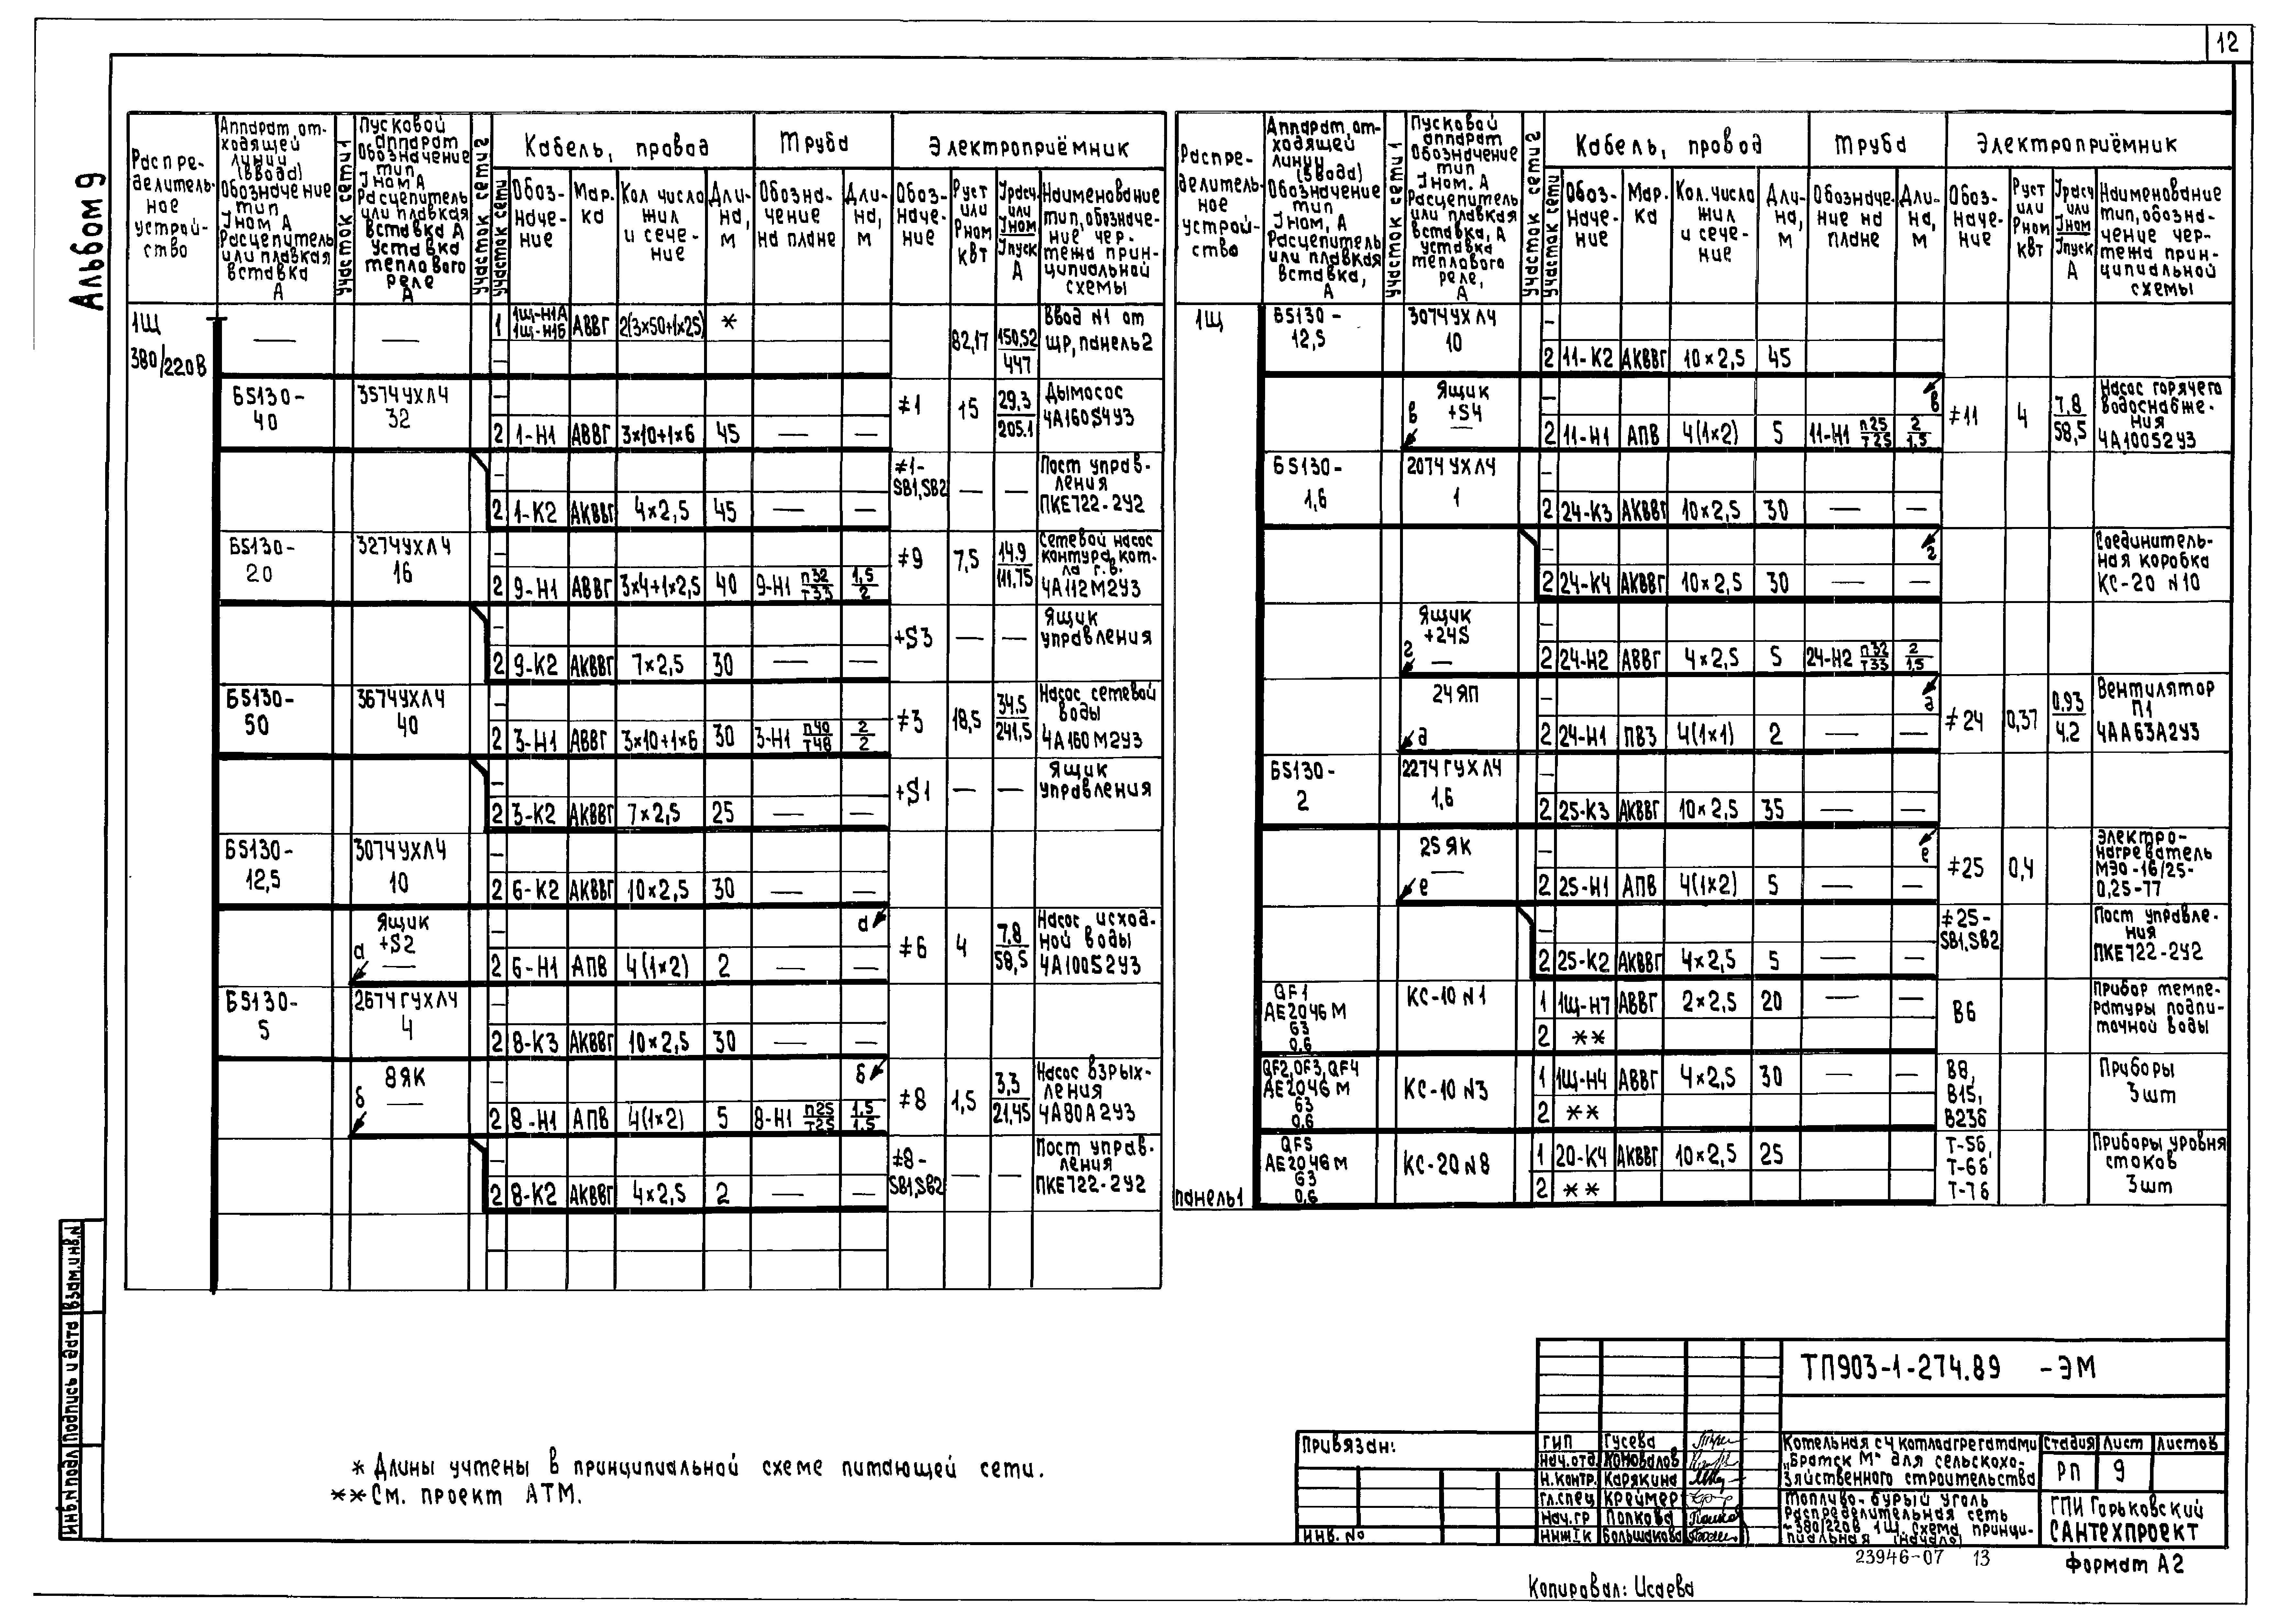 12
Альбом 9
Распре-
делитель-
ное
устрой-
ство
Аппарат, от-
ходящей
линии
(ввода)
Обозначение
тип
Iном А
Расцепитель
или плавкая
вставка
А
участок сети 1
Пусковой
аппарат
Обозначение
тип
Iном А
Расцепитель
или плавкая
вставка А
уставка
теплового
реле
А
участок сети 2
Кабель, провод
участок сети
Обоз-
наче-
ние
Мар.
ка
Кол. число
жил
и сече-
ние
Дли-
на,
м
Труба
Обозна-
чение
на плане
Дли-
на,
м
Электроприёмник
Обоз-
наче-
ние
Руст
или
Рном
кВт
Iрасч
или
Iном
Iпуск
А
Наименование
тип, обозначе-
ние чер-
тежа прин-
ципиальной
схемы
1Щ
380/220В
— — 1 1Щ-Н1А 1Щ-Н1Б АВВГ 2(3×50+1×25) * 82,17 150,52/447 Ввод N1 от
ЩР, панель 2
Б5130-40 3574УХЛ4 32 — 2 1-Н1 АВВГ 3×10+1×6 45 — — ≠1 15 29,3/205.1 Дымосос
4А160S4У3
— 2 1-К2 АКВВГ 4×2,5 45 — — ≠1-SB1,SB2 — — Пост управ-
ления
ПКЕ722-2У2
Б5130-20 3274УХЛ4 16 — 2 9-Н1 АВВГ 3×4+1×2,5 40 9-Н1 П32/Т33 1,5/2 ≠9 7,5 14.9/111,75 Сетевой насос
контура кот-
ла г.в.
4А112М2У3
— 2 9-К2 АКВВГ 7×2,5 30 — — +S3 — — Ящик
управления
Б5130-50 3674УХЛ4 40 — 2 3-Н1 АВВГ 3×10+1×6 30 3-Н1 П40/Т48 2/2 ≠3 18,5 34.5/241,5 Насос сетевой
воды
4А160М2У3
— 2 3-К2 АКВВГ 7×2,5 25 — — +S1 — — Ящик
управления
Б5130-12,5 3074УХЛ4 10 — 2 6-К2 АКВВГ 10×2,5 30 — —
Ящик +S2 — а — 2 6-Н1 АПВ 4(1×2) 2 — — а ≠6 4 7.8/58,5 Насос исход-
ной воды
4А100S2У3
Б5130-5 2674ГУХЛ4 4 — 2 8-К3 АКВВГ 10×2,5 30 — —
8ЯК — б — 2 8-Н1 АПВ 4(1×2) 5 8-Н1 П25/Т25 1,5/1.5 б ≠8 1,5 3.3/21,45 Насос взрых-
ления
4А80А2У3
— 2 8-К2 АКВВГ 4×2,5 2 — — ≠8-SB1,SB2 — — Пост управ-
ления
ПКЕ722-2У2
Распре-
делитель-
ное
устрой-
ство
Аппарат, от-
ходящей
линии
(ввода)
Обозначение
тип
Iном, А
Расцепитель
или плавкая
вставка,
А
участок сети 1
Пусковой
аппарат
Обозначение
тип
Iном. А
Расцепитель
или плавкая
вставка, А
уставка
теплового
реле,
А
участок сети 2
Кабель, провод
участок сети
Обоз-
наче-
ние
Мар-
ка
Кол. число
жил
и сече-
ние
Дли-
на,
м
Труба
Обозначе-
ние на
плане
Дли-
на,
м
Электроприёмник
Обоз-
наче-
ние
Руст
или
Рном
кВт
Iрасч
или
Iном
Iпуск
А
Наименование
тип, обозна-
чение чер-
тежа прин-
ципиальной
схемы
1Щ
Б5130-12,5 3074УХЛ4 10 — 2 11-К2 АКВВГ 10×2,5 45
Ящик +S4 — в — 2 11-Н1 АПВ 4(1×2) 5 11-Н1 П25/Т25 2/1,5 в ≠11 4 7,8/58,5 Насос горячего
водоснабже-
ния
4А100S2У3
Б5130-1,6 2074УХЛ4 1 — 2 24-К3 АКВВГ 10×2,5 30 — —
— 2 24-К4 АКВВГ 10×2,5 30 — — г Соединитель-
ная коробка
КС-20 N10
Ящик +24S — г — 2 24-Н2 АВВГ 4×2,5 5 24-Н2 П32/Т33 2/1,5
24ЯП д — 2 24-Н1 ПВ3 4(1×1) 2 — — д ≠24 0,37 0,93/4.2 Вентилятор
П1
4АА63А2У3
Б5130-2 2274ГУХЛ4 1,6 — 2 25-К3 АКВВГ 10×2,5 35 — —
25ЯК — е — 2 25-Н1 АПВ 4(1×2) 5 — — е ≠25 0,4 Электро-
нагреватель
МЭО-16/25-
0,25-77
— 2 25-К2 АКВВГ 4×2,5 5 — — ≠25-SB1,SB2 Пост управле-
ния
ПКЕ722-2У2
QF1 АЕ2046М 63 0,6 КС-10 N1 1 1Щ-Н7 АВВГ 2×2,5 20 — — 2 ** В6 Прибор темпе-
ратуры подпи-
точной воды
QF2,QF3,QF4 АЕ2046М 63 0,6 КС-10 N3 1 1Щ-Н4 АВВГ 4×2,5 30 — — 2 ** В8, В15, В23б Приборы
3шт
QF5 АЕ2046М 63 0,6 КС-20 N8 1 20-К4 АКВВГ 10×2,5 25 2 ** Т-5б, Т-6б Т-7б Приборы уровня
стоков
3шт
панель1
* Длины учтены в принципиальной схеме питающей сети.
** См. проект АТМ.
Инв.N подл Подпись и дата Взам.инв.N
Привязан:
Инв. No
ГИП Гусева
Нач.отд. Коновалов
Н.контр. Карякина
Гл.спец Креймер
Нач.гр Попкова
Инж.I к Большакова
ТП903-1-274.89 -ЭМ
Котельная с 4 котлоагрегатами
„Братск М" для сельскохо-
зяйственного строительства
Стадия Лист Листов
РП 9
Топливо-бурый уголь
Распределительная сеть
~380/220В 1Щ. Схема принци-
пиальная (начало)
ГПИ Горьковский
САНТЕХПРОЕКТ
23946-07 13
Формат А2
Копировал: Исаева